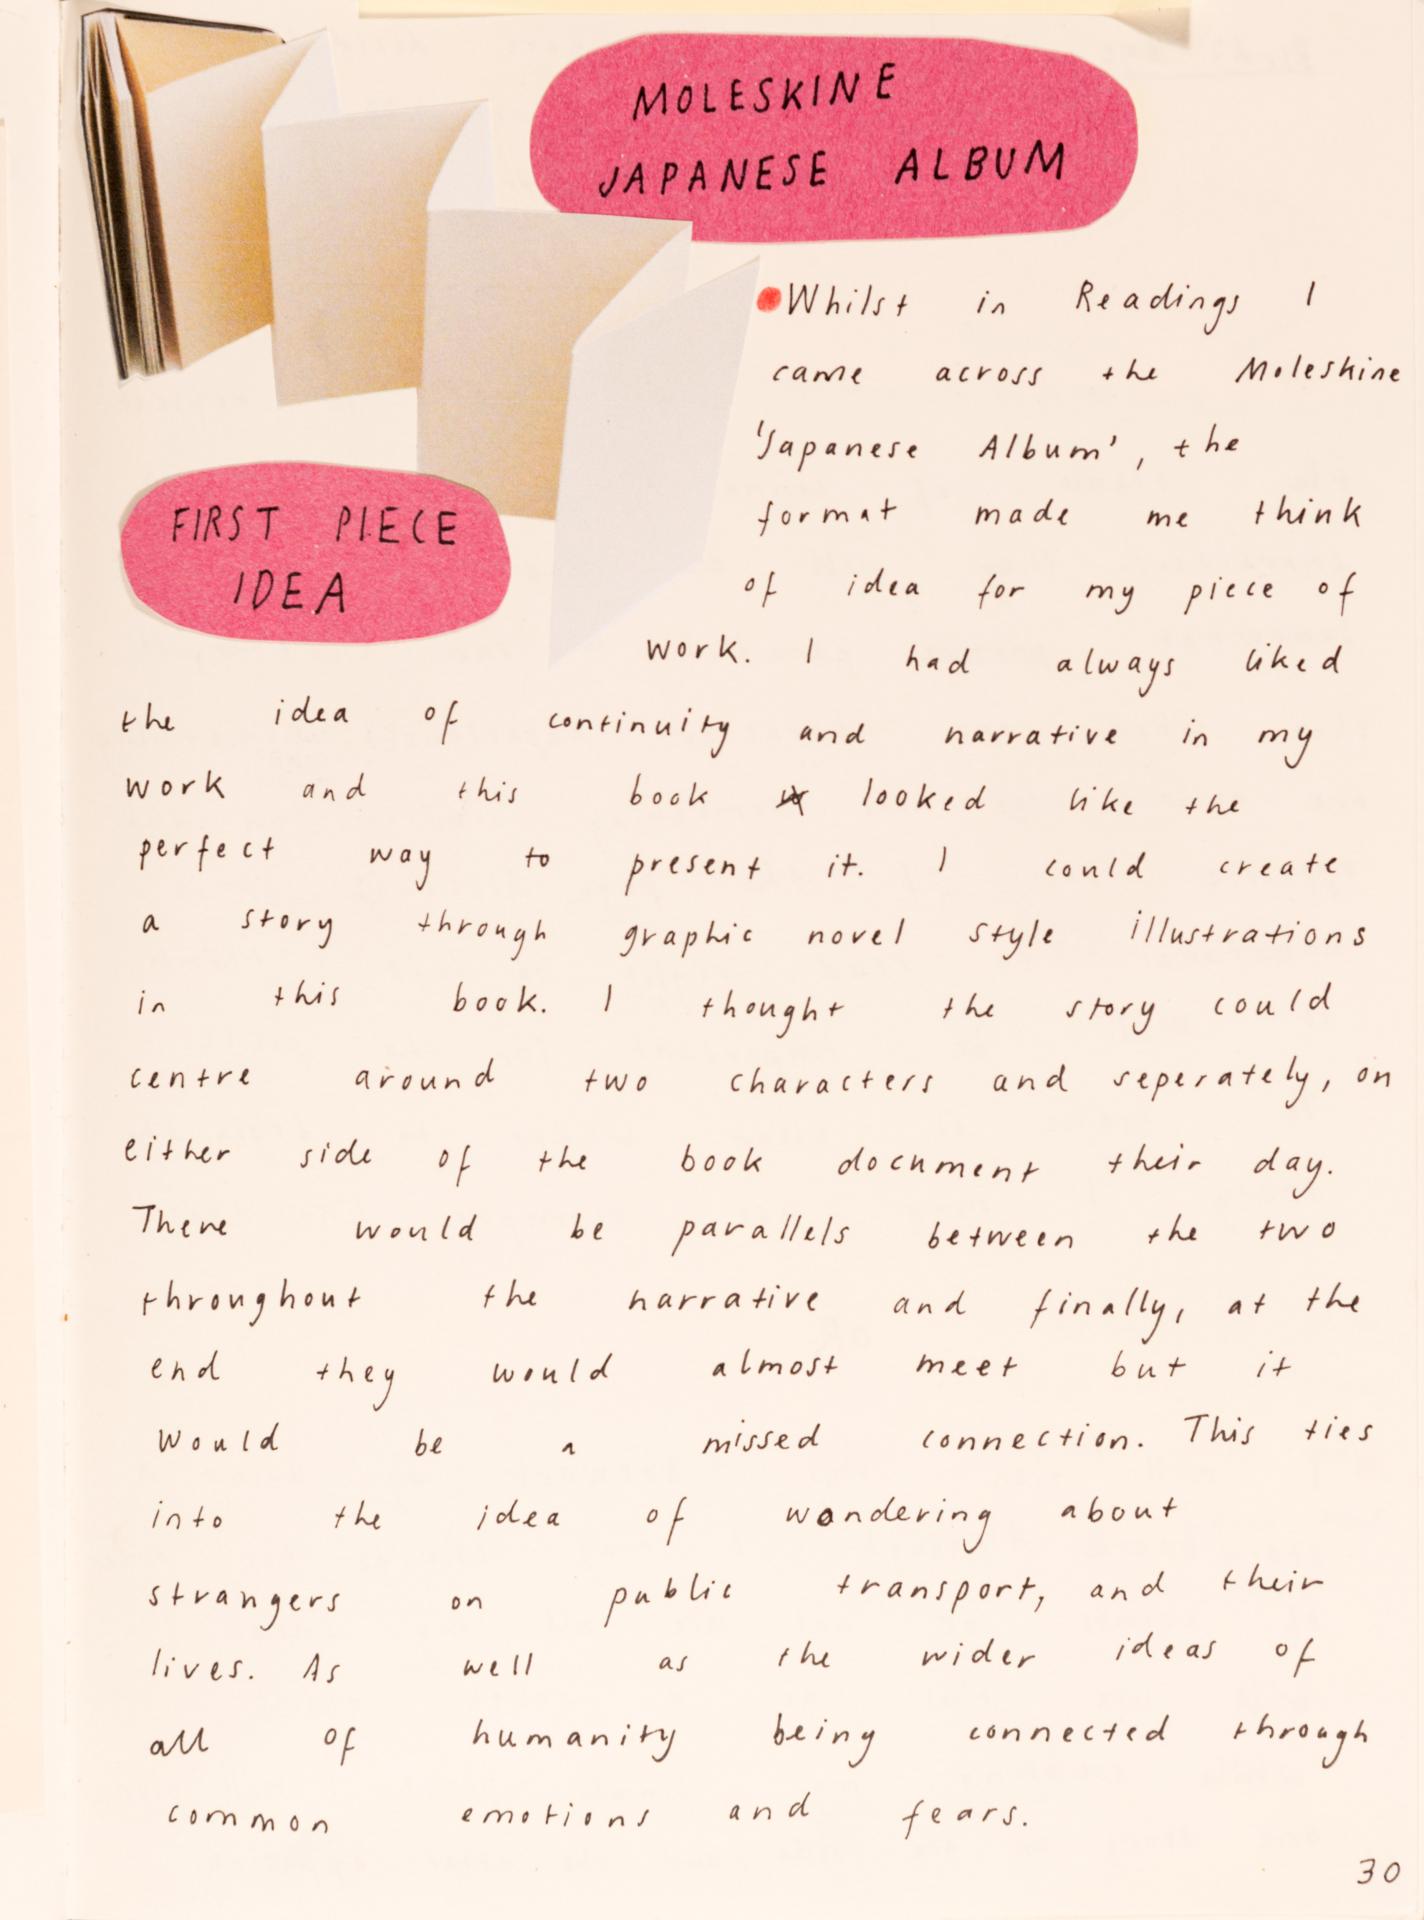 MOLESKINE
JAPANESE ALBUM
FIRST PIECE
IDEA
Whilst in Readings I
came across the Moleskine
'Japanese Album', the
format made me think
of idea for my piece of
work. I had always liked
the idea of continuity and narrative in my
work and this book looked like the
perfect way to present it. I could create
a story through graphic novel style illustrations
in this book. I thought the story could
centre around two characters and seperately, on
either side of the book document their day.
There would be parallels between the two
throughout the narrative and finally, at the
end they would almost meet but it
would be a missed connection. This ties
into the idea of wondering about
strangers on public transport, and their
lives. As well as the wider ideas of
all of humanity being connected through
common emotions and fears.
30